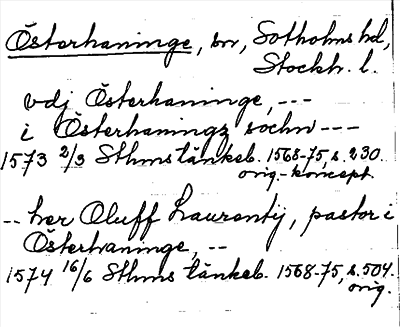 Österhaninge, sn, Sotholms hd,
Stockh. l.
vdj Österhaninge, ---
i Österhaningz sochn ---
1573 2/3 Sthms tänkeb. 1568-75, s. 230.
orig.-koncept
-- her Oluff Laurentij, pastor i
Österhaninge, --
1574 16/6 Sthms tänkeb. 1568-75, s. 504.
orig.